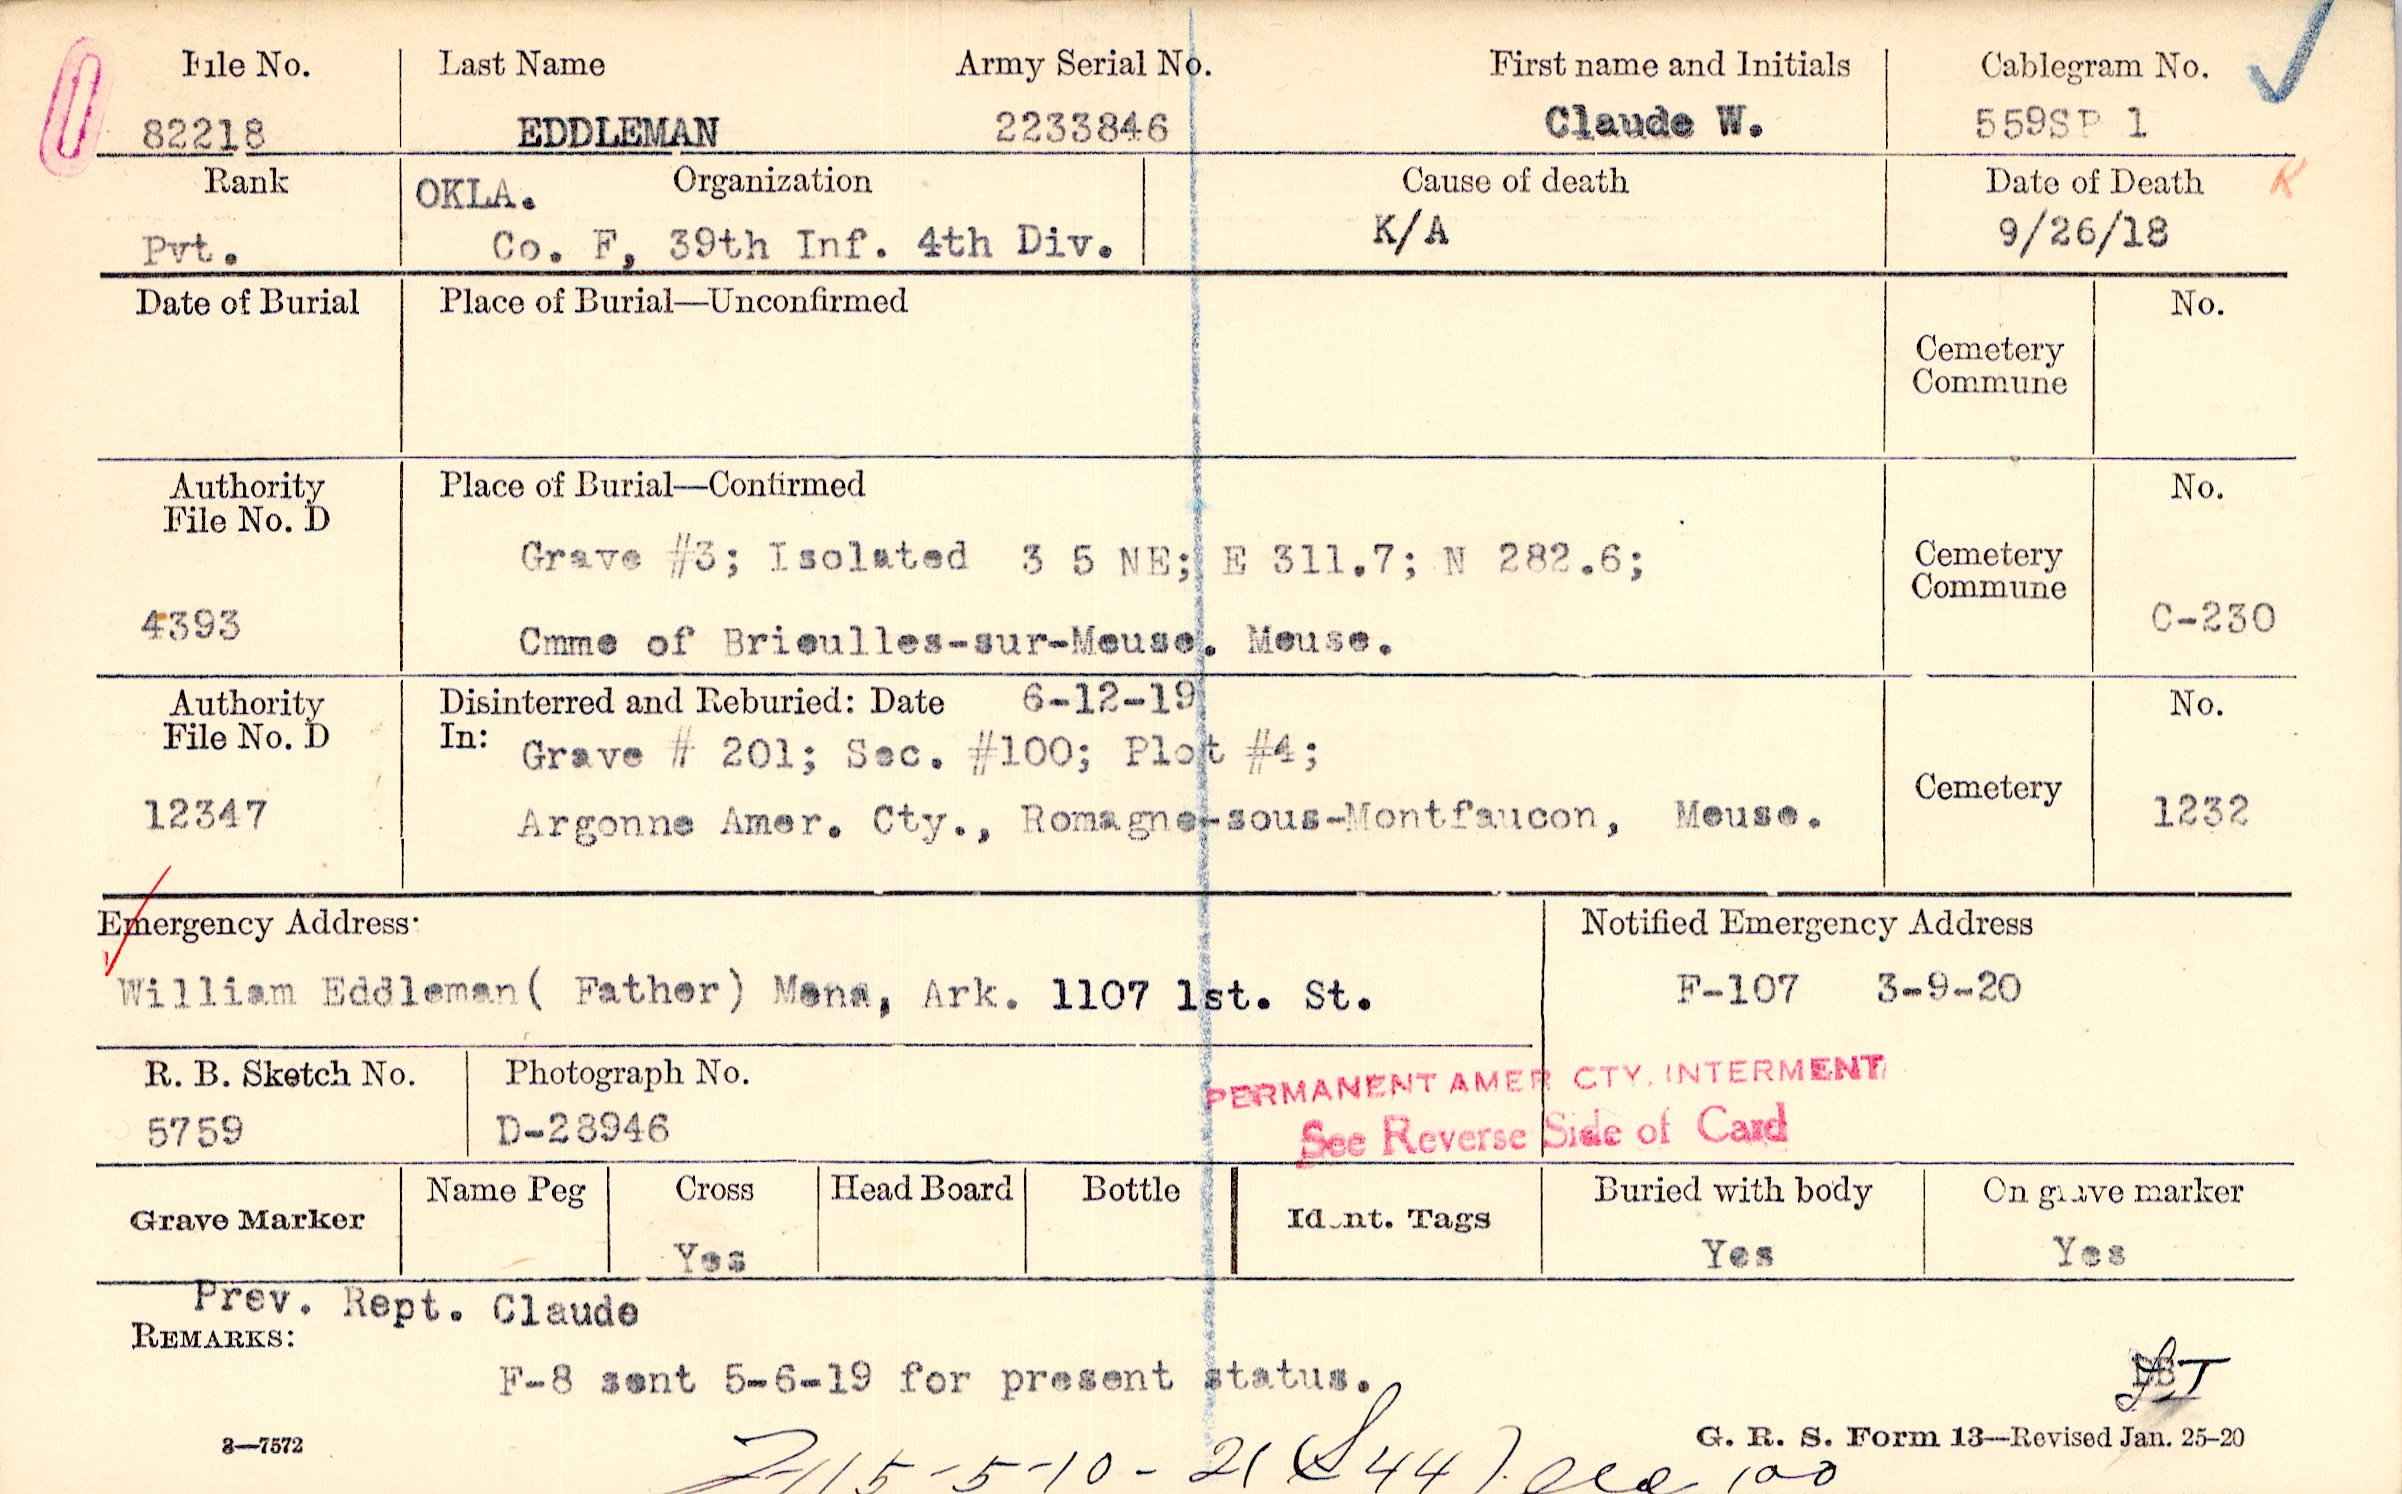 File No. Last Name Army Serial No. First name and Initials Cablegram No.
82218 EDDLEMAN 2233846 Claude W. 559SP 1
Rank OKLA. Organization Cause of death Date of Death K
Pvt. Co. F, 39th Inf. 4th Div. K/A 9/26/18
Date of Burial Place of Burial—Unconfirmed No.
Cemetery
Commune
Authority Place of Burial—Confirmed No.
File No. D
Grave #3; Isolated 3 5 NE; E 311.7; N 282.6; Cemetery
Commune
4393 Cmme of Brieulles-sur-Meuse. Meuse. C-230
Authority Disinterred and Reburied: Date 6-12-19 No.
File No. D In: Grave # 201; Sec. #100; Plot #4;
Cemetery
12347 Argonne Amer. Cty., Romagne-sous-Montfaucon, Meuse. 1232
Emergency Address: Notified Emergency Address
William Eddleman( Father) Mena, Ark. 1107 1st. St. F-107 3-9-20
R. B. Sketch No. Photograph No. PERMANENT AMER CTY. INTERMENT
5759 D-28946 See Reverse Side of Card
Name Peg Cross Head Board Bottle Buried with body On grave marker
Grave Marker Ident. Tags
Yes Yes Yes
Prev. Rept. Claude
REMARKS:
F-8 sent 5-6-19 for present status.
3—7572 G. R. S. Form 13—Revised Jan. 25-20
5-10-21 (S44)